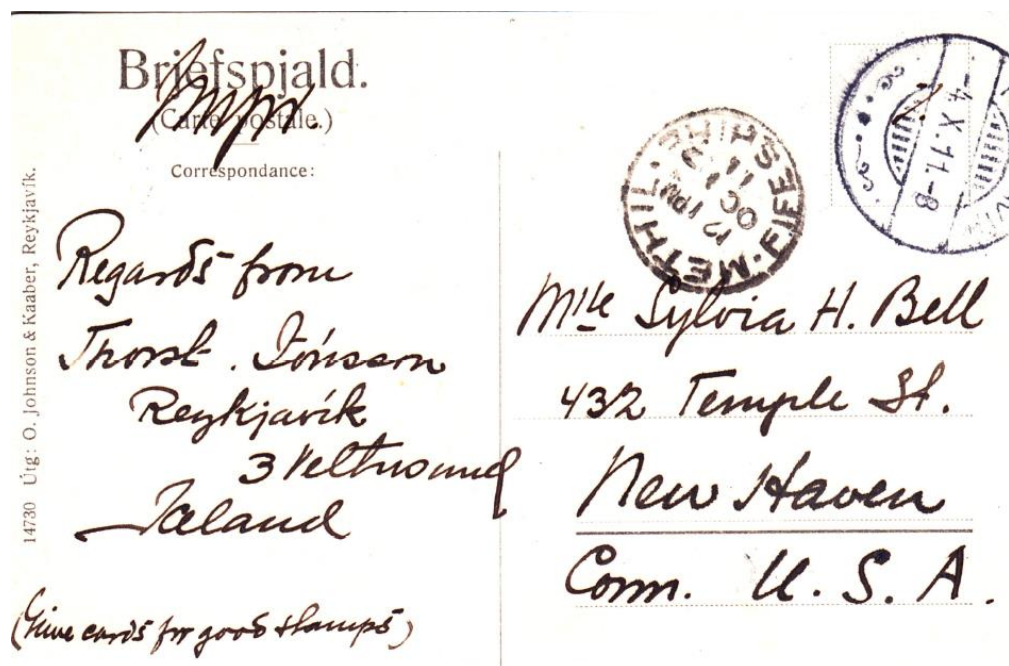 Briefspjald.
(Carte postale.)
Correspondance:
14730 Útg: O. Johnson & Kaaber, Reykjavík.
Regards from
Thorst. Jónsson
Reykjavík
3 Veltusund
Iceland
(Give cards for good stamps)
METHIL · FIFESHIRE
12 1PM
OC 11
11
-4.X.11.-8
Mlle Sylvia H. Bell
432 Temple St.
New Haven
Conn. U. S. A.